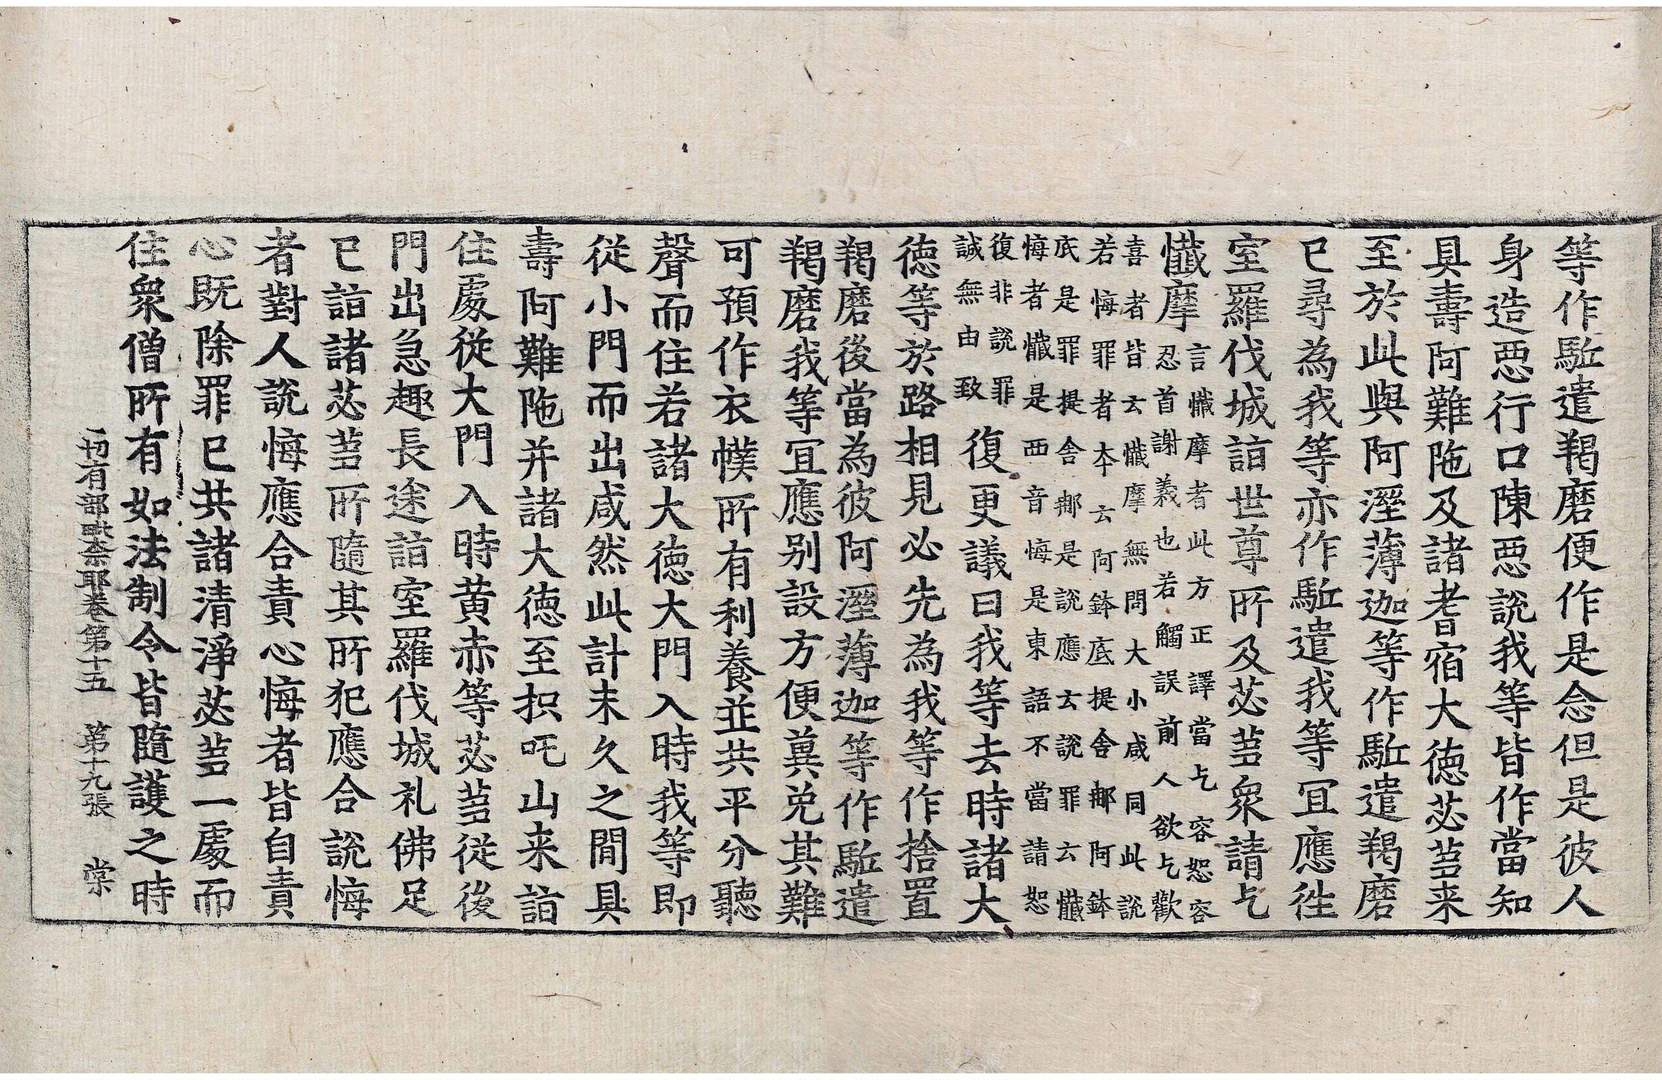 等作駈遣羯磨便作是念但是彼人
身造惡行口陳惡說我等皆作當知
具壽阿難陁及諸耆宿大德苾芻来
至於此與阿溼薄迦等作駈遣羯磨
已尋為我等亦作駈遣我等宜應徃
室羅伐城詣世尊所及苾芻衆請乞
懺摩言懺摩者此方正譯當乞容恕容
忍首謝義也若觸誤前人欲乞歡
喜者皆云懺摩無問大小咸同此說
若悔罪者夲云阿鉢底提舍那阿鉢
底是罪提舍那是說應云說罪云懺
悔者懺是西音悔是東語不當請恕
復非說罪
誠無由致
復更議曰我等去時諸大
德等於路相見必先為我等作捨置
羯磨後當為彼阿溼薄迦等作駈遣
羯磨我等宜應别設方便冀免其難
可預作衣襆所有利養並共平分聽
聲而住若諸大德大門入時我等即
從小門而出咸然此計未久之間具
壽阿難陁并諸大德至枳吒山来詣
住處從大門入時黄赤等苾芻從後
門出急趣長途詣室羅伐城礼佛足
已詣諸苾芻所隨其所犯應合說悔
者對人說悔應合責心悔者皆自責
心既除罪已共諸清淨苾芻一處而
住衆僧所有如法制令皆隨護之時
一切有部毗奈耶卷第十五 第十九張 棠